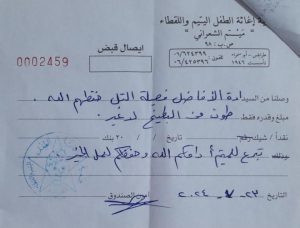 إغاثة الطفل اليتيم واللقطاء
" ميتم الشعراني "
ص.ب : ٩٨
طرابلس - أبو سمراء
تأسس ١٩٤٦
٠٦/٦٢٤٣٩٩
تلفون
٠٦/٤٢٥٣٩٦
ايصال قبض
0002459
وصلنا من السيد ادة الأفاضل فصيلة التل حفظهم الله .
مبلغ وقدره فقط طون من البطيخ لا غير .
نقداً / شيك رقم تاريخ / / ٢٠ بنك
وذلك تبرع للميتم أدامكم الله ووفقكم لعمل الخير .
تاريخ ٢٣ - ٧ - ٢٠٢٤ أمين الصندوق